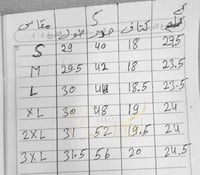 مقاس طول صدر كتاف كم
S 29 40 18 23.5
M 29.5 42 18 23.5
L 30 44 18.5 23.5
XL 30 48 19 24
2XL 31 52 19.5 24
3XL 31.5 56 20 24.5